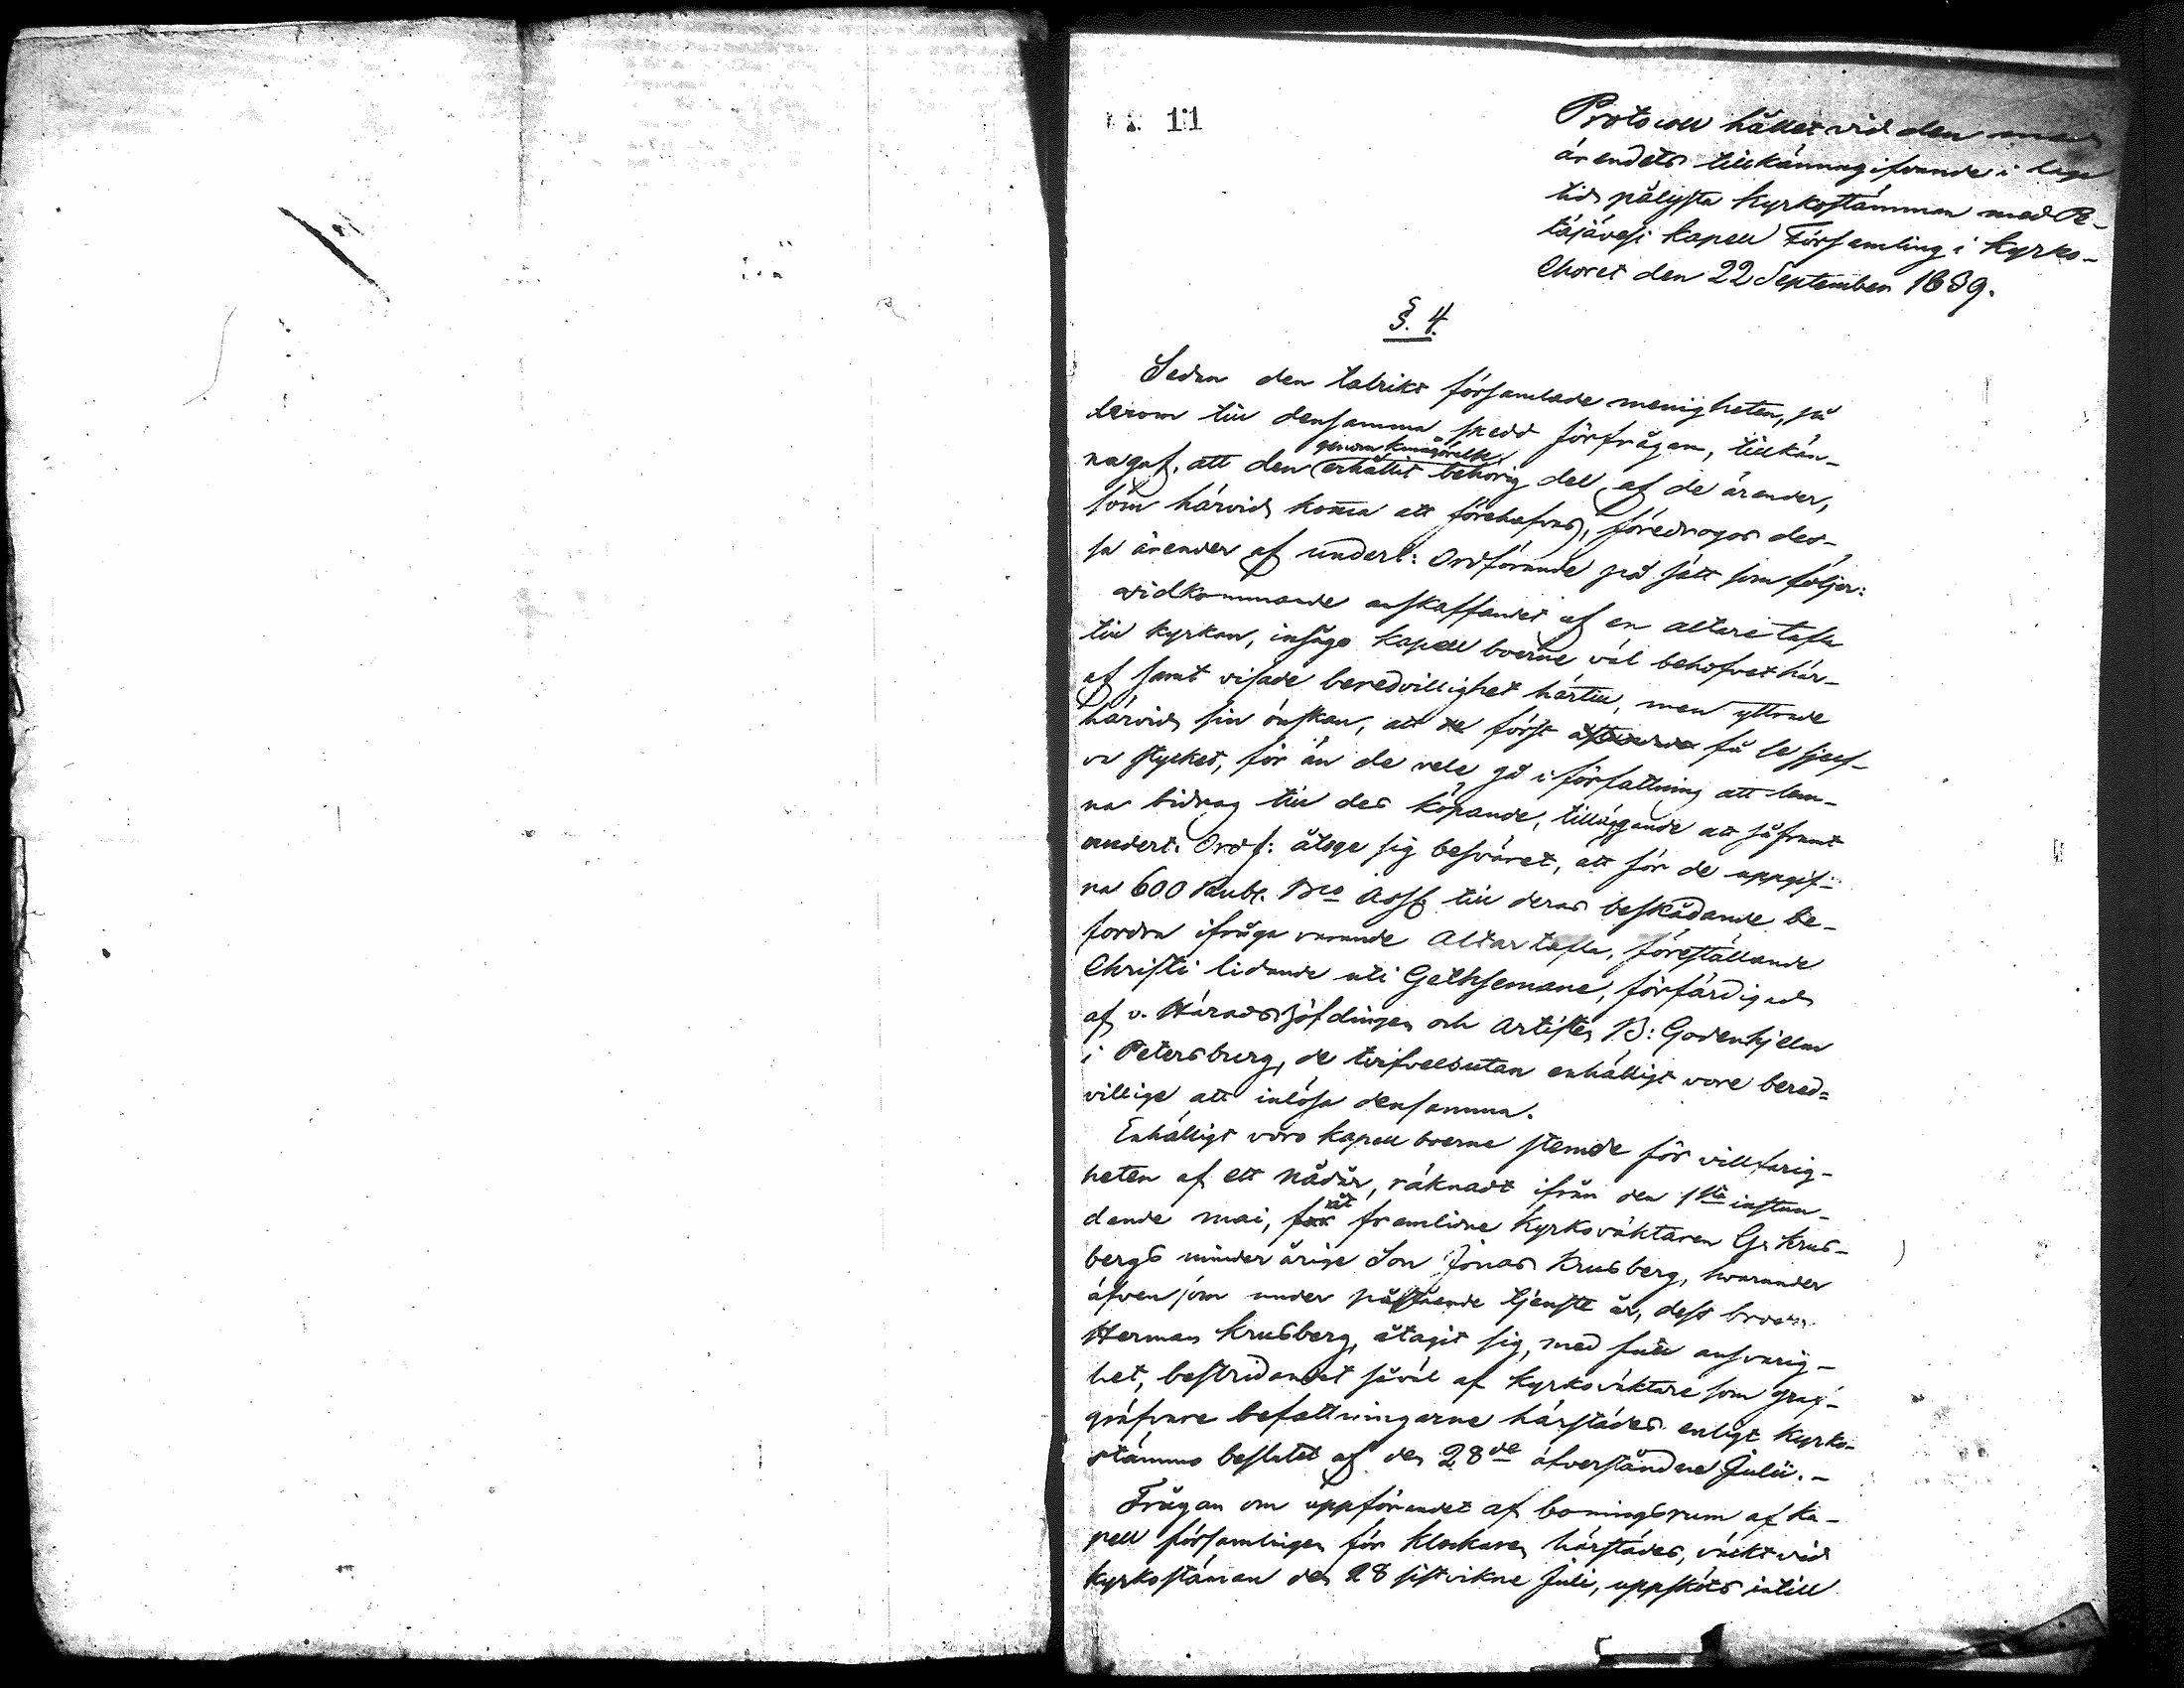 11
Protocoll hållet vid den med
ärendets tillkännagifvande i laga
tid pålysta Kyrkostämman med Pe-
täjävesi kapell Församling i Kyrko-
Choret den 22 September 1839.
§. 4.
Sedan den talrikt församlade menigheten, på
derom till densamma skedd förfrågan, tillkän-
genom kungörelse
nagaf, att den erhållit behörig del af de ärender,
som härvid komma att förehafvas, föredrogos des-
sa ärender af undert: Ordförande på sätt som följer:
vidkommande anskaffandet af en altare tafla
till kyrkan, insågo kapell boerne väl behofvet här-
af samt visade beredvillighet härtill, men yttrade
härvid sin önskan, att först få se sjelf-
va stycket, för än de vele gå i författning att lem-
na bidrag till des köpande, tilläggande att såframt
undert. Ordf: åtoge sig besväret, att för de uppgif-
na 600 Rub. Bco Assg till deras beskådande be-
fordra ifråga varande Altar tafla, föreställande
Christi lidande uti Gethsemane, förfärdigad
af v. Häradshöfdingen och Artisten B: Godenhjelm
i Petersburg, de tvifvelsutan enhälligt vore bered-
villige att inlösa densamma.
Enhälligt voro kapell boerne stemde för villfarig-
heten af ett nådår, räknadt ifrån den 1sta instun-
åt
dande mai, för framlidne Kyrkoväktaren G. Krus-
bergs minderårige Son Jonas Krusberg, hvarunder
äfven som under påstående tjenste år, dess broder
Herman Krusberg, åtagit sig, med full ansvarig-
het, bestridandet såväl af Kyrkoväktare som graf-
gräfvare befattningarne härstädes enligt Kyrko-
stämmo beslutet af den 28de afverståndne Julii.-
Frågan om uppförandet af boningsrum af ka-
pell församlingen för Klockaren härstädes, väckt vid
Kyrkostämman den 28 sistvikne Juli, uppsköts intill